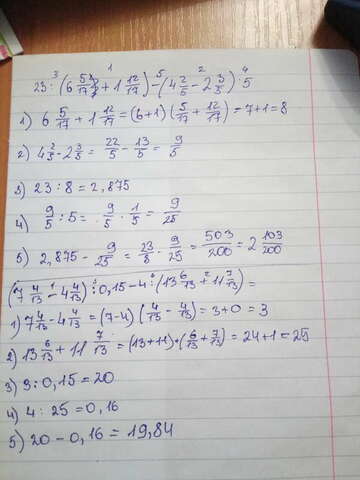 3 1 5 2 4
23 : (6 5/17 + 1 12/17) - (4 2/5 - 2 3/5) : 5
1) 6 5/17 + 1 12/17 = (6+1) (5/17 + 12/17) = 7+1=8
2) 4 2/5 - 2 3/5 = 22/5 - 13/5 = 9/5
3) 23 : 8 = 2,875
4) 9/5 : 5 = 9/5 · 1/5 = 9/25
5) 2,875 - 9/25 = 23/8 - 9/25 = 503/200 = 2 103/200
(7 4/13 - 4 4/13) : 0,15 - 4 : (13 6/13 + 11 7/13) =
1) 7 4/13 - 4 4/13 = (7-4) (4/13 - 4/13) = 3+0 = 3
2) 13 6/13 + 11 7/13 = (13+11) + (6/13 + 7/13) = 24+1=25
3) 3 : 0,15 = 20
4) 4 : 25 = 0,16
5) 20 - 0,16 = 19,84